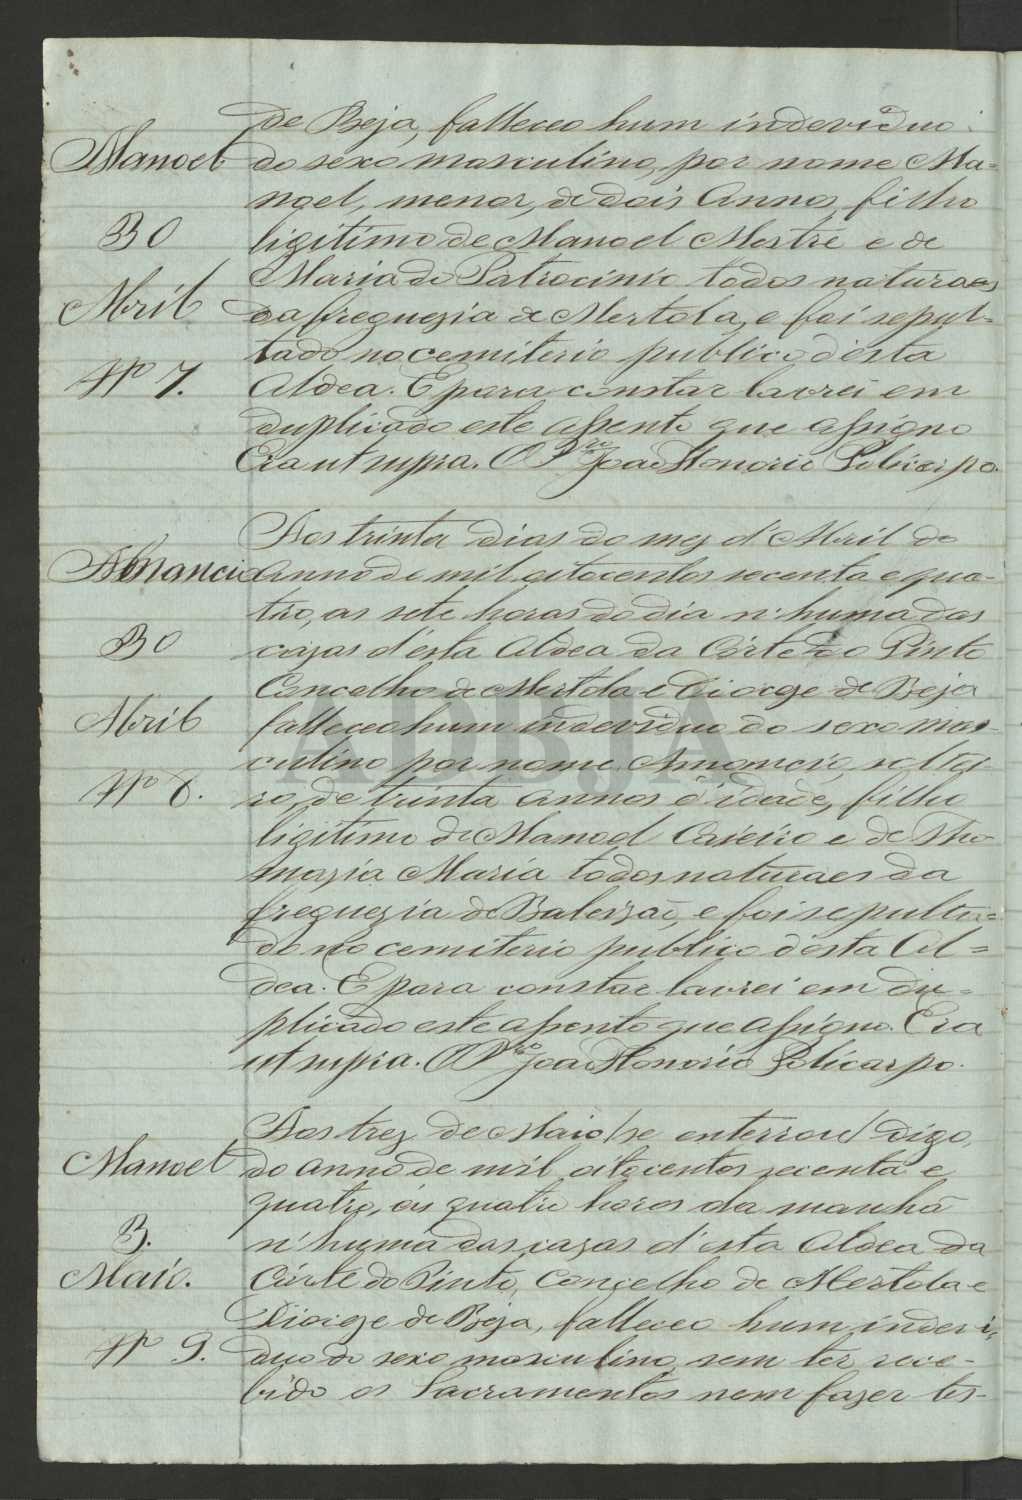 de Beja, falleceo hum indeviduo
Manoel
do sexo masculino, por nome Ma-
noel, menor, de dois Annos, filho
30
ligitimo de Manoel Mestre e de
Maria do Patrocinio todos naturaes
Abril
da freguezia de Mertola, e foi sepul-
tado no cemiterio publico désta
Nº 7.
Aldea. E para constar lavrei em
duplicado este assento que assigno
Era ut supra. O Pre. Joaõ Honorio Policarpo.
Aos trinta dias do mez d'Abril do
Amancio
Anno de mil oitocentos secenta e qua-
tro, as sete horas do dia n'huma das
30
cazas d'ésta Aldea da Córte do Pinto
Concelho de Mertola e Diocge de Beja
Abril
falleceo hum indeviduo do sexo mas-
ADBJA
culino por nome Amancio, soltei-
Nº 8.
ro, de trinta annos d'idade, filho
ligitimo de Manoel Caseiro e de Tho-
mazia Maria todos naturaes da
freguezia de Baleizaõ, e foi sepulta-
do no cemiterio publico désta Al=
dea. E para constar lavrei em du-
plicado este assento que assigno. Era
ut supra. O Pro. Joaõ Honorio Policarpo.
Aos trez de Maio /se enterrou/ digo,
Manoel
do anno de mil oitocentos secenta e
quatro, ás quatro horas da manhã
3.
n'huma das cazas d'ésta Aldea da
Maio.
Córte do Pinto, Concelho de Mertola e
Diocge de Beja, falleceo hum indevi-
Nº 9.
duo do sexo masculino, sem ter rece-
bido os Sacramentos nem fazer tes-